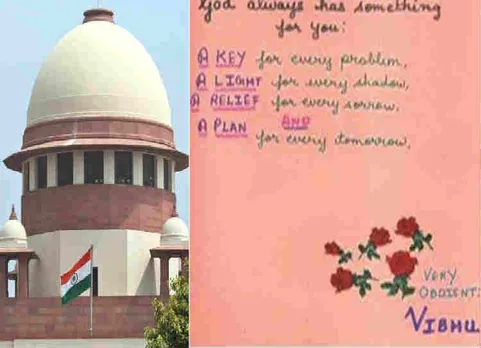 God always has something
for you:
A KEY for every problem,
A LIGHT for every shadow,
A RELIEF for every sorrow,
AND
A PLAN for every tomorrow,
VERY
OBDIENT:
VIBHU